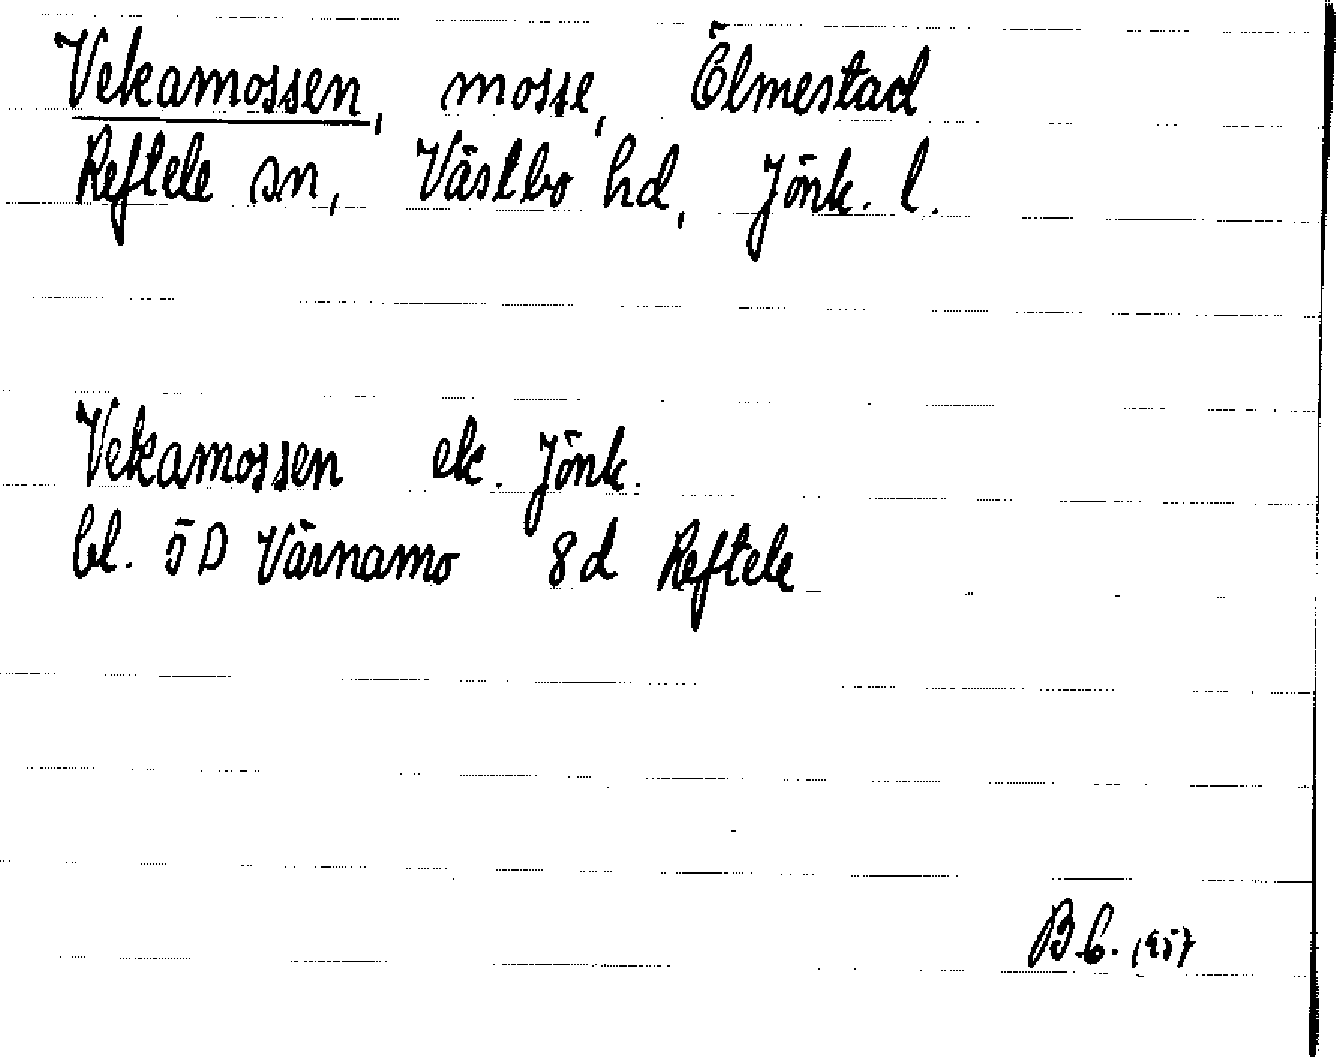 Vekamossen, mosse, Ölmestad
Reftele sn, Västbo hd, Jönk. l.
Vekamossen ek. Jönk.
bl. 5D Värnamo 8d Reftele
B.b. 1957